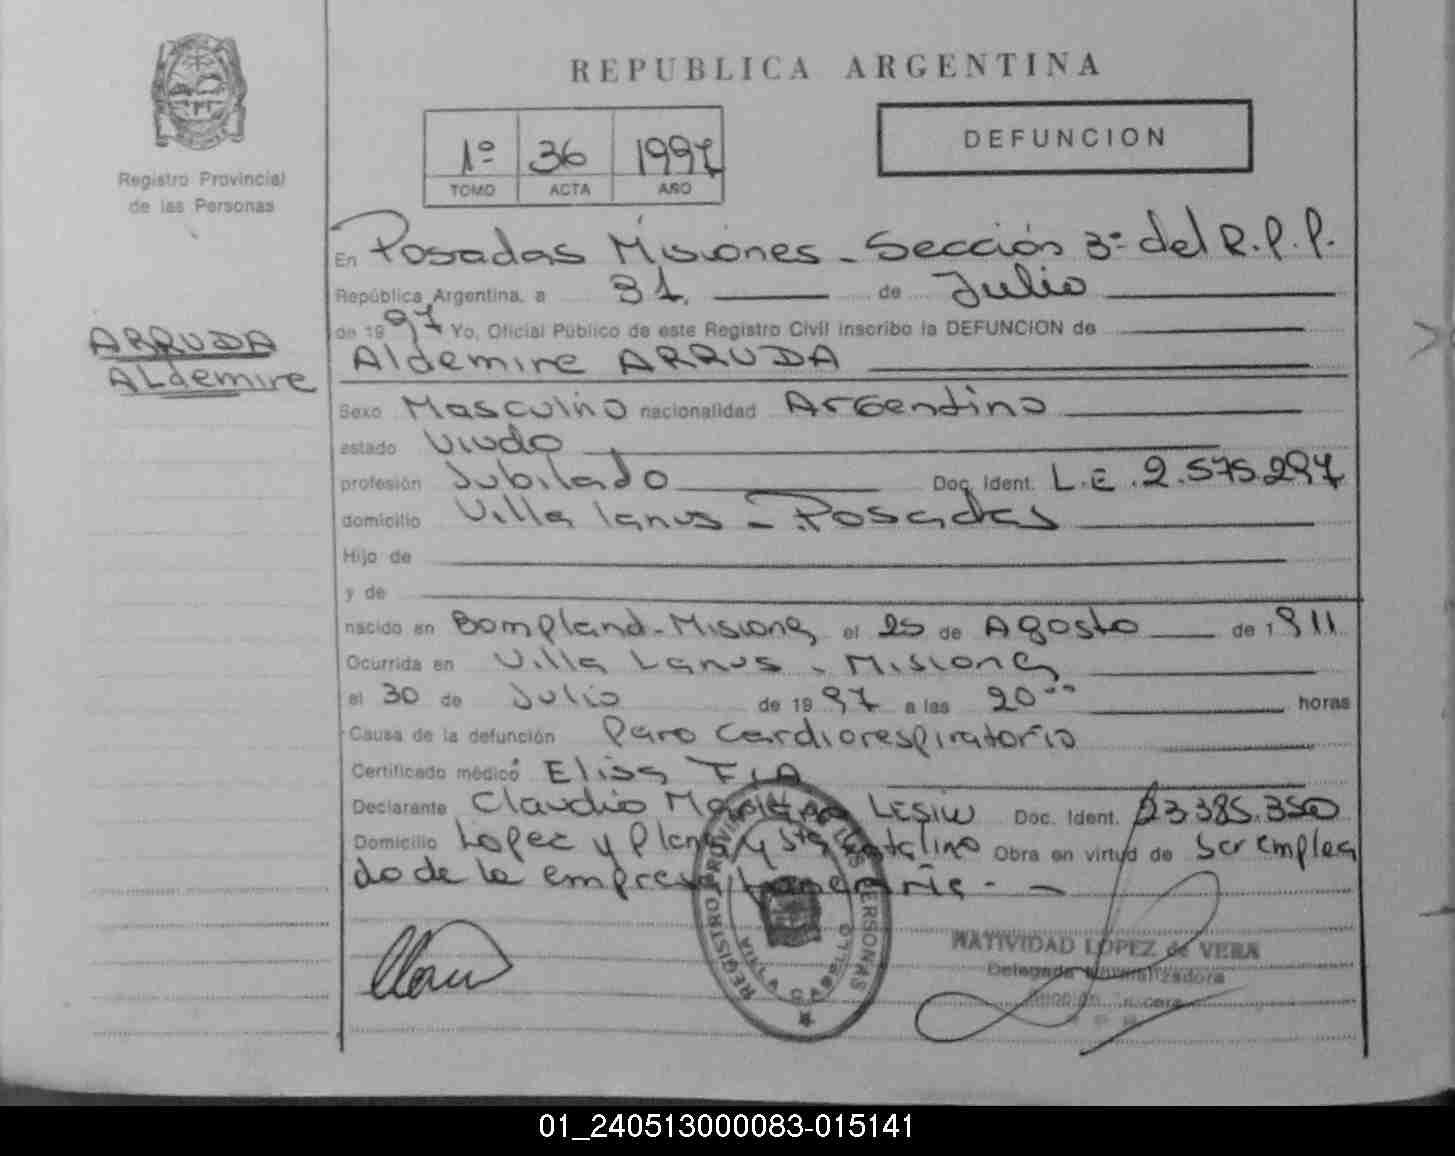 REPUBLICA ARGENTINA
Registro Provincial
de las Personas
1º 36 1997
TOMO ACTA AÑO
DEFUNCION
ARRUDA
ALdemire
En Posadas Misiones - Sección 3º del R.P.P.
República Argentina, a 31 de Julio
de 1997 Yo, Oficial Público de este Registro Civil inscribo la DEFUNCION de
Aldemire ARRUDA
Sexo Masculino nacionalidad Argentino
estado Viudo
profesión Jubilado Doc. Ident. L.E. 2.575.297
domicilio Villa lanus - Posadas
Hijo de
y de
nacido en Bompland - Misiones el 25 de Agosto de 1911
Ocurrida en Villa Lanus - Misiones
el 30 de Julio de 1997 a las 20 horas
Causa de la defunción Paro cardiorespiratorio
Certificado médico Eliss
Declarante Claudio LESIW Doc. Ident. 23.385.350
Domicilio Lopez y Planes y Sta Catalina Obra en virtud de Ser emplea
do de la empresa
REGISTRO PROVINCIAL DE LAS PERSONAS
VILLA CABELLO
NATIVIDAD LOPEZ de VERA
Delegada Normalizadora
01_240513000083-015141